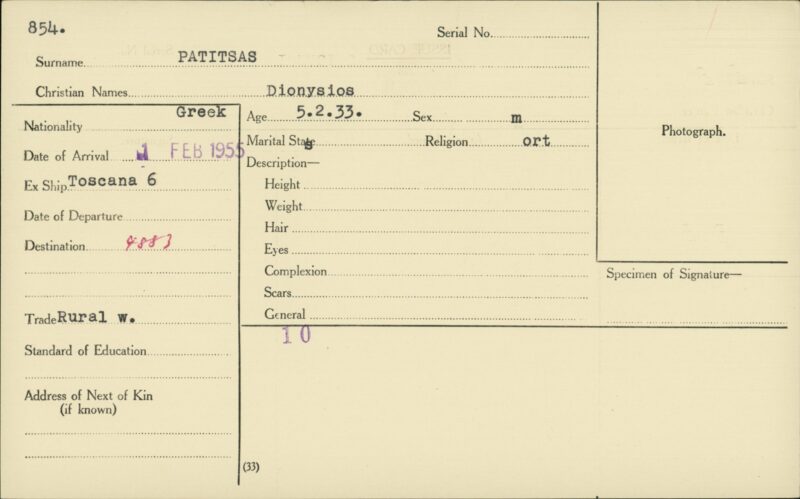 854.
Serial No.
Surname PATITSAS
Christian Names Dionysios
Nationality Greek
Date of Arrival 1 FEB 1955
Ex Ship Toscana 6
Date of Departure
Destination 4883
Trade Rural w.
Standard of Education
Address of Next of Kin
(if known)
Age 5.2.33. Sex m
Marital State s Religion ort
Description—
Height
Weight
Hair
Eyes
Complexion
Scars
General
10
(33)
Photograph.
Specimen of Signature—